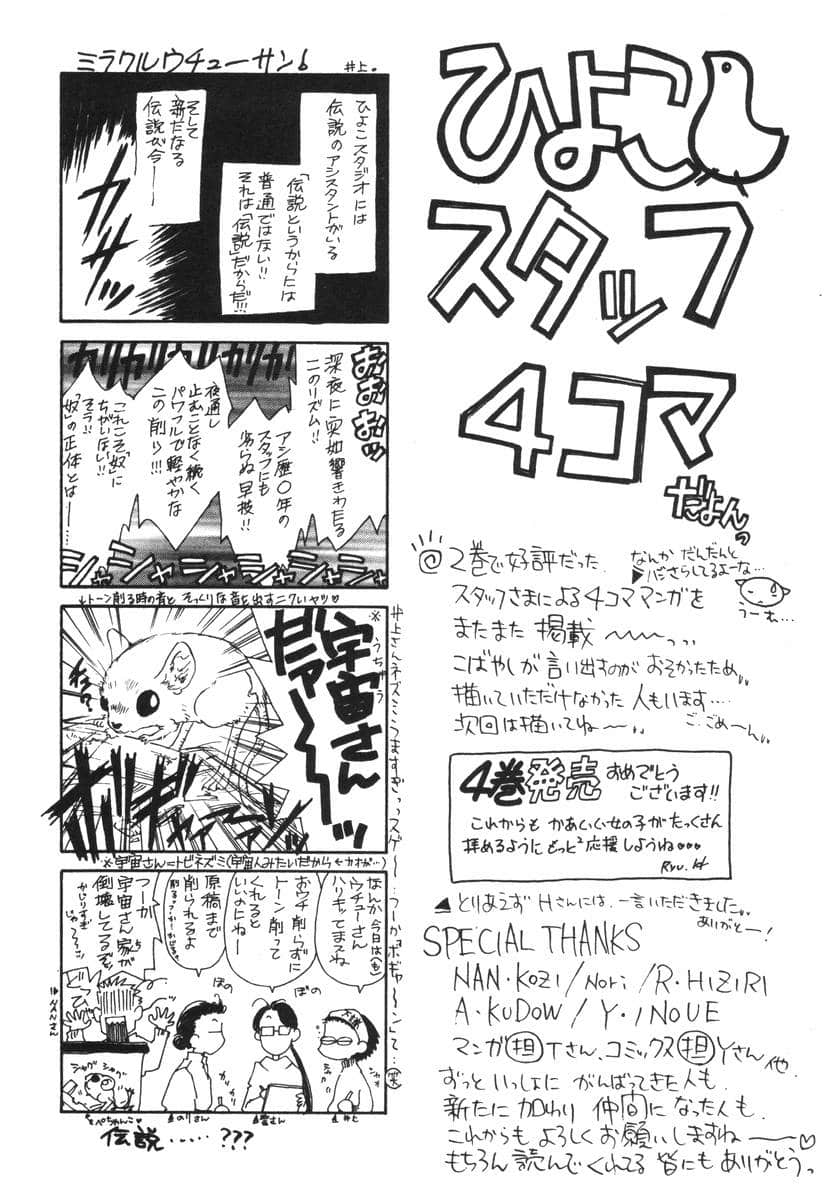 ひよこ
スタッフ
4コマ
だよんっ
@2巻で好評だった
スタッフさまによる4コママンガを
またまた掲載〜〜〜っっ
こばやしが言い出すのがおそかったため〟
描いていただけなかった人もいます…
次回は描いてね〜〟
ご、ごめ〜ん〟
なんかだんだんと
うーむ…
4巻発売おめでとう
ございます!!
これからも かあいい女の子がたっくさん
拝めるようにもっと²応援しようね…
Ryu.H
▲とりあえずHさんには、一言いただきました〟
ありがとー!
SPECIAL THANKS
NAN・KOZI/NORI/R・HIZIRI
A・KUDOW/Y・INOUE
マンガ担Tさん、コミックス担Yさん他
ずっといっしょに がんばってきた人も、
新たに加わり 仲間になった人も、
これからもよろしくお願いしますね〜♡
もちろん読んでくれてる皆にもありがとう。
ミラクルウチューサン♭
井上。
ひよこスタジオには
伝説のアシスタントがいる
「伝説というからには
普通ではない!!
それは「伝説」だからだ!!!
そして
新たなる
伝説が今――
カッ
おおおおっ
ガリガリガリガリ
深夜に
響きわたる
このリズム!!
アシ歴〇年の
スタッフにも
劣らぬ早技!!
夜通し
止むことなく続く
パワフルで軽やかな
この削り!!!
これこそ「奴」に
ちがいない!!
そう!!
「奴」の正体とは――……
シャカシャカシャカシャカ
↓トーン削る時の音と そっくりな音を出すニクいヤツ♡
※宇宙さん
うちゅう
だァ〜〜ッ
なっ?
井上さんネズミうますぎっっスゲ〜…つーか“ボギャ〜ン”て…(笑)
※宇宙さん=トビネズミ(宇宙人みたいだから←カオが…)
なんか今日は(も)
ウチューさん
ハリキッてますね
おウチ削らずに
トーン削って
くれると
いいのにねー
原稿まで
削られるよ
つーか
宇宙さん家が
倒壊してるぞッ
かじりすぎ
じゃ〜〜ッ
ほの
ほの
どっひー
シャグ シャグ
▲NANさん
▲ぺちゃんこ♡
▲のりさん
▲聖さん
▲井上
伝説……???